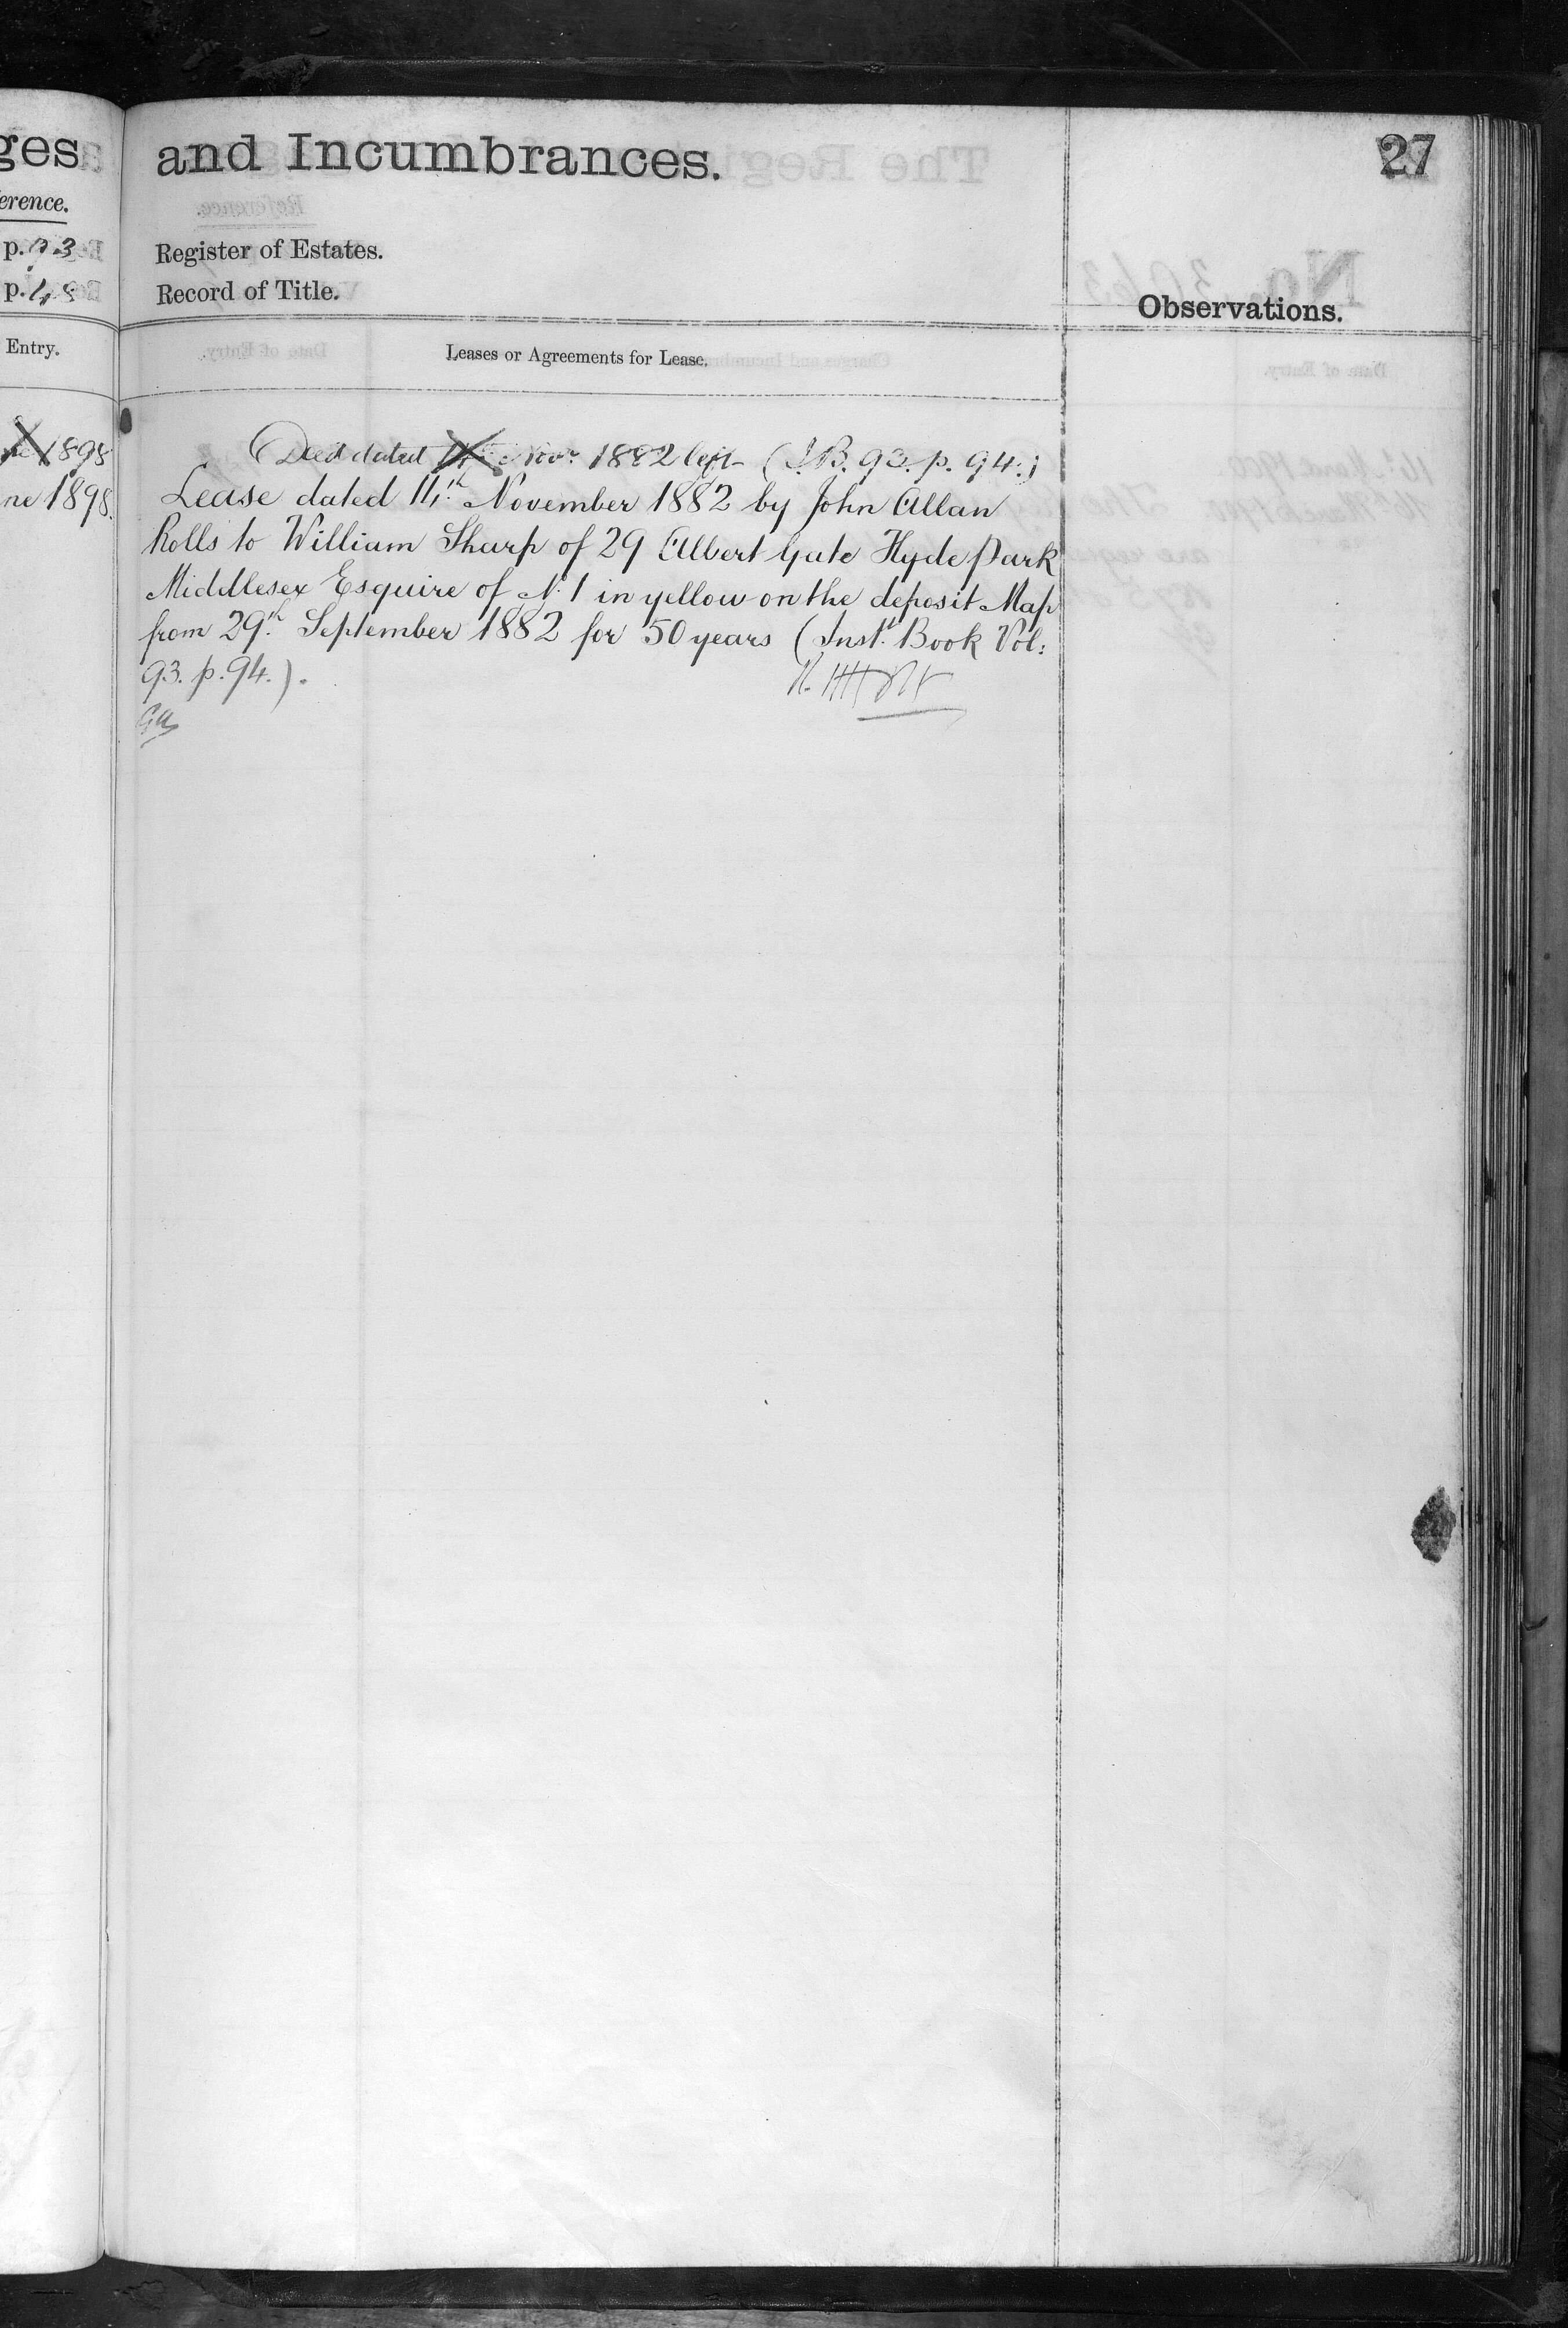 and Incumbrances.
27
Register of Estates.
Record of Title.
Observations.
Leases or Agreements for Lease.
Deed dated Novr 1882 left (I.B. 93. p. 94.)
Lease dated 14th November 1882 by John Allan
Rolls to William Sharp of 29 Albert Gate Hyde Park
Middlesex Esquire of No 1 in yellow on the deposit Map
from 29th September 1882 for 50 years (Inst. Book Vol:
93. p. 94.).
ges
erence.
p. 93
p. 48
Entry.
1898
ne 1898.